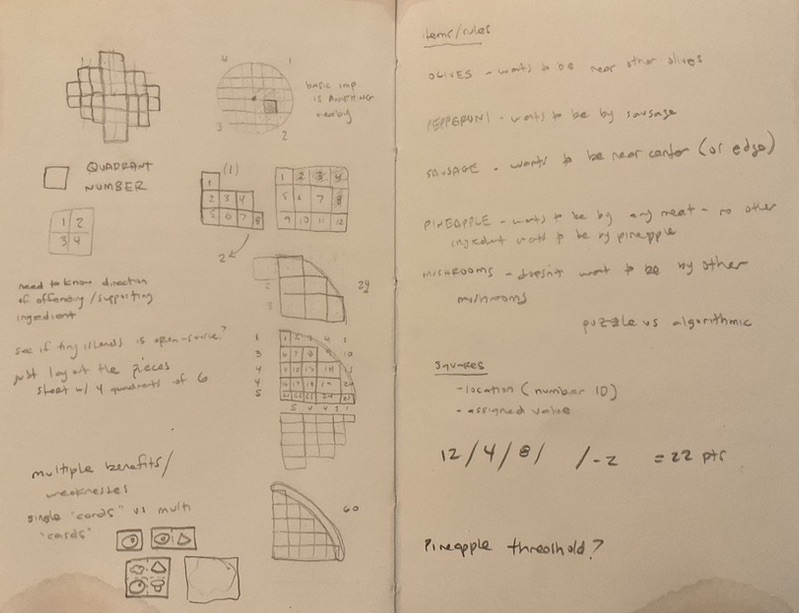 4 1
3 2
basic imp
is ANYTHING
nearby
QUADRANT
NUMBER
(1)
1
2 3 4
5 6 7 8
2
1 2 3 4
5 6 7 8
9 10 11 12
1 2
3 4
need to know direction
of offending/supporting
ingredient
24
see if tiny islands is open-source?
just lay out the pieces
sheet w/ 4 quadrants of 6
1
3
4
4
5
5 4 4 3 1
multiple benefits/
weaknesses
single "cards" vs multi
"cards"
60
items/rules
OLIVES - wants to be near other olives
PEPPERONI - wants to be by sausage
SAUSAGE - wants to be near center (or edge)
PINEAPPLE - wants to be by any meat - no other
ingredient wants to be by pineapple
MUSHROOMS - doesn't want to be by other
mushrooms
puzzle vs algorithmic
SQUARES
- location (number ID)
- assigned value
12 / 4 / 8 / / -2 = 22 pts
Pineapple threshold?